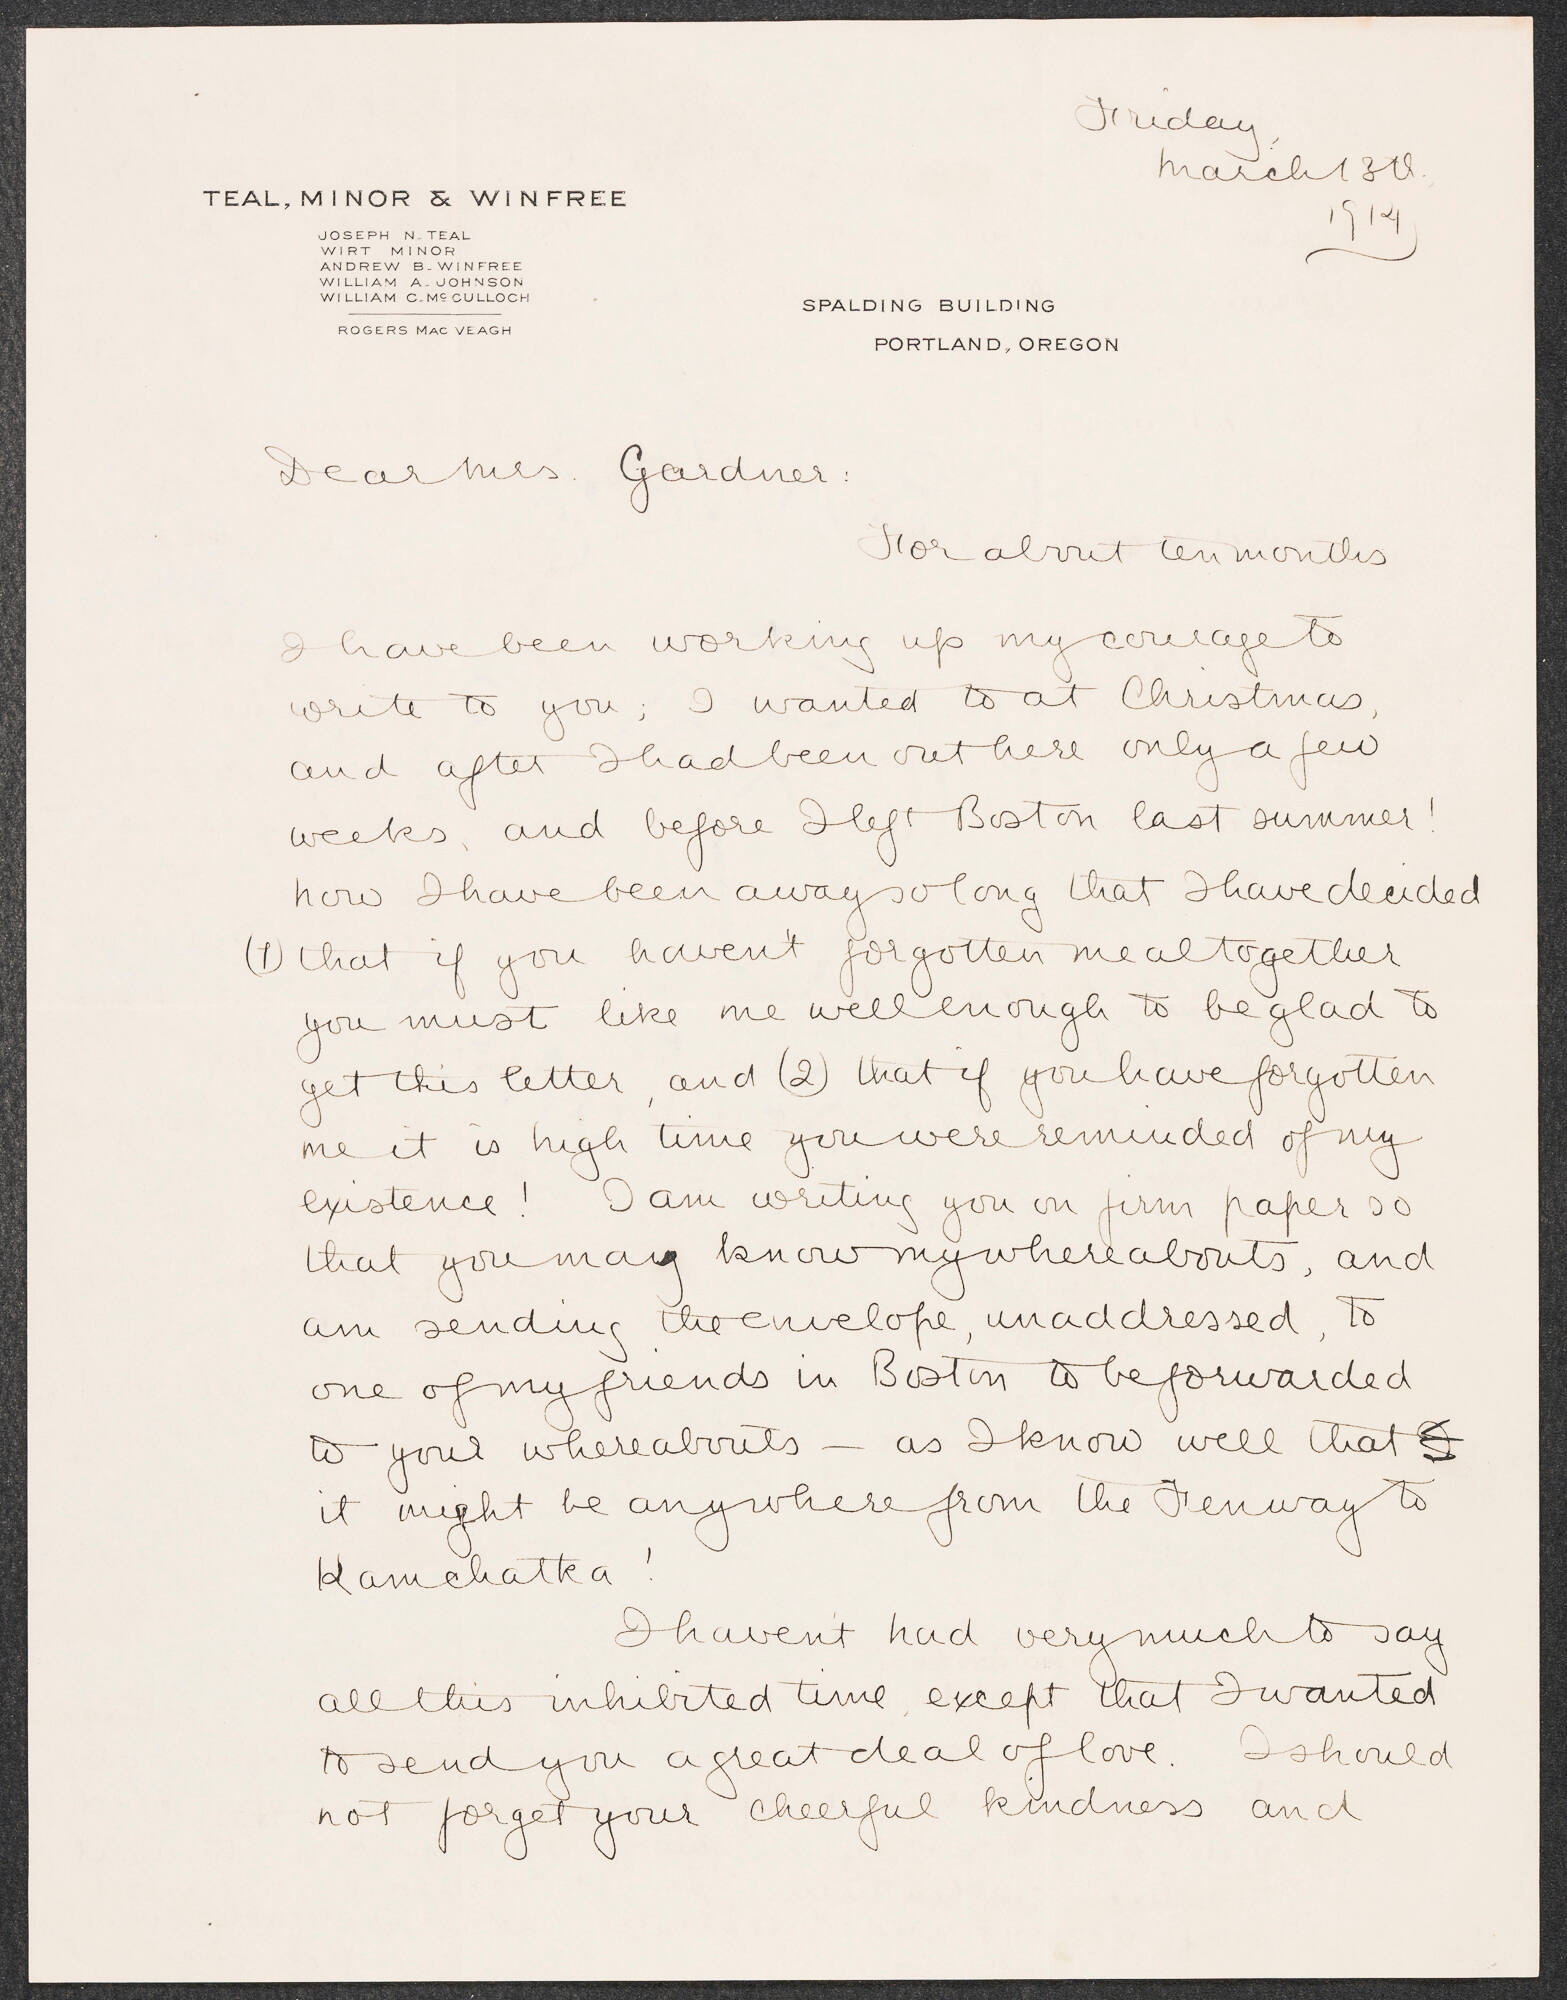 Friday,
March 13th.
1914
TEAL, MINOR & WINFREE
JOSEPH N. TEAL
WIRT MINOR
ANDREW B. WINFREE
WILLIAM A. JOHNSON
WILLIAM C. McCULLOCH
ROGERS MAC VEAGH
SPALDING BUILDING
PORTLAND, OREGON
Dear Mrs. Gardner:
For about ten months
I have been working up my courage to
write to you; I wanted to at Christmas,
and after I had been out here only a few
weeks, and before I left Boston last summer!
Now I have been away so long that I have decided
(1) that if you haven't forgotten me altogether
you must like me well enough to be glad to
get this letter, and (2) that if you have forgotten
me it is high time you were reminded of my
existence! I am writing you on firm paper so
that you may know my whereabouts, and
am sending the envelope, unaddressed, to
one of my friends in Boston to be forwarded
to your whereabouts — as I know well that
it might be anywhere from the Fenway to
Kamchatka!
I haven't had very much to say
all this inhibited time, except that I wanted
to send you a great deal of love. I should
not forget your cheerful kindness and